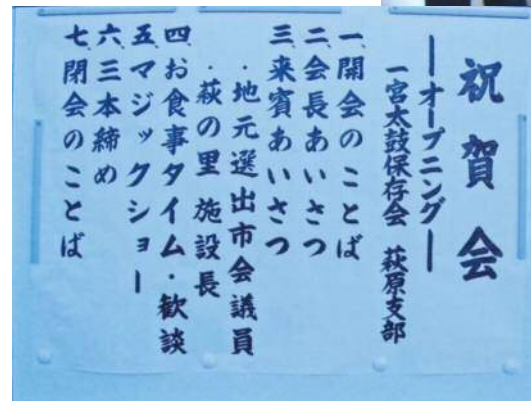 祝賀会
―オープニング―
一宮太鼓保存会 萩原支部
一、開会のことば
二、会長あいさつ
三、来賓あいさつ
・地元選出市会議員
・萩の里 施設長
四、お食事タイム・歓談
五、マジックショー
六、三本締め
七、閉会のことば